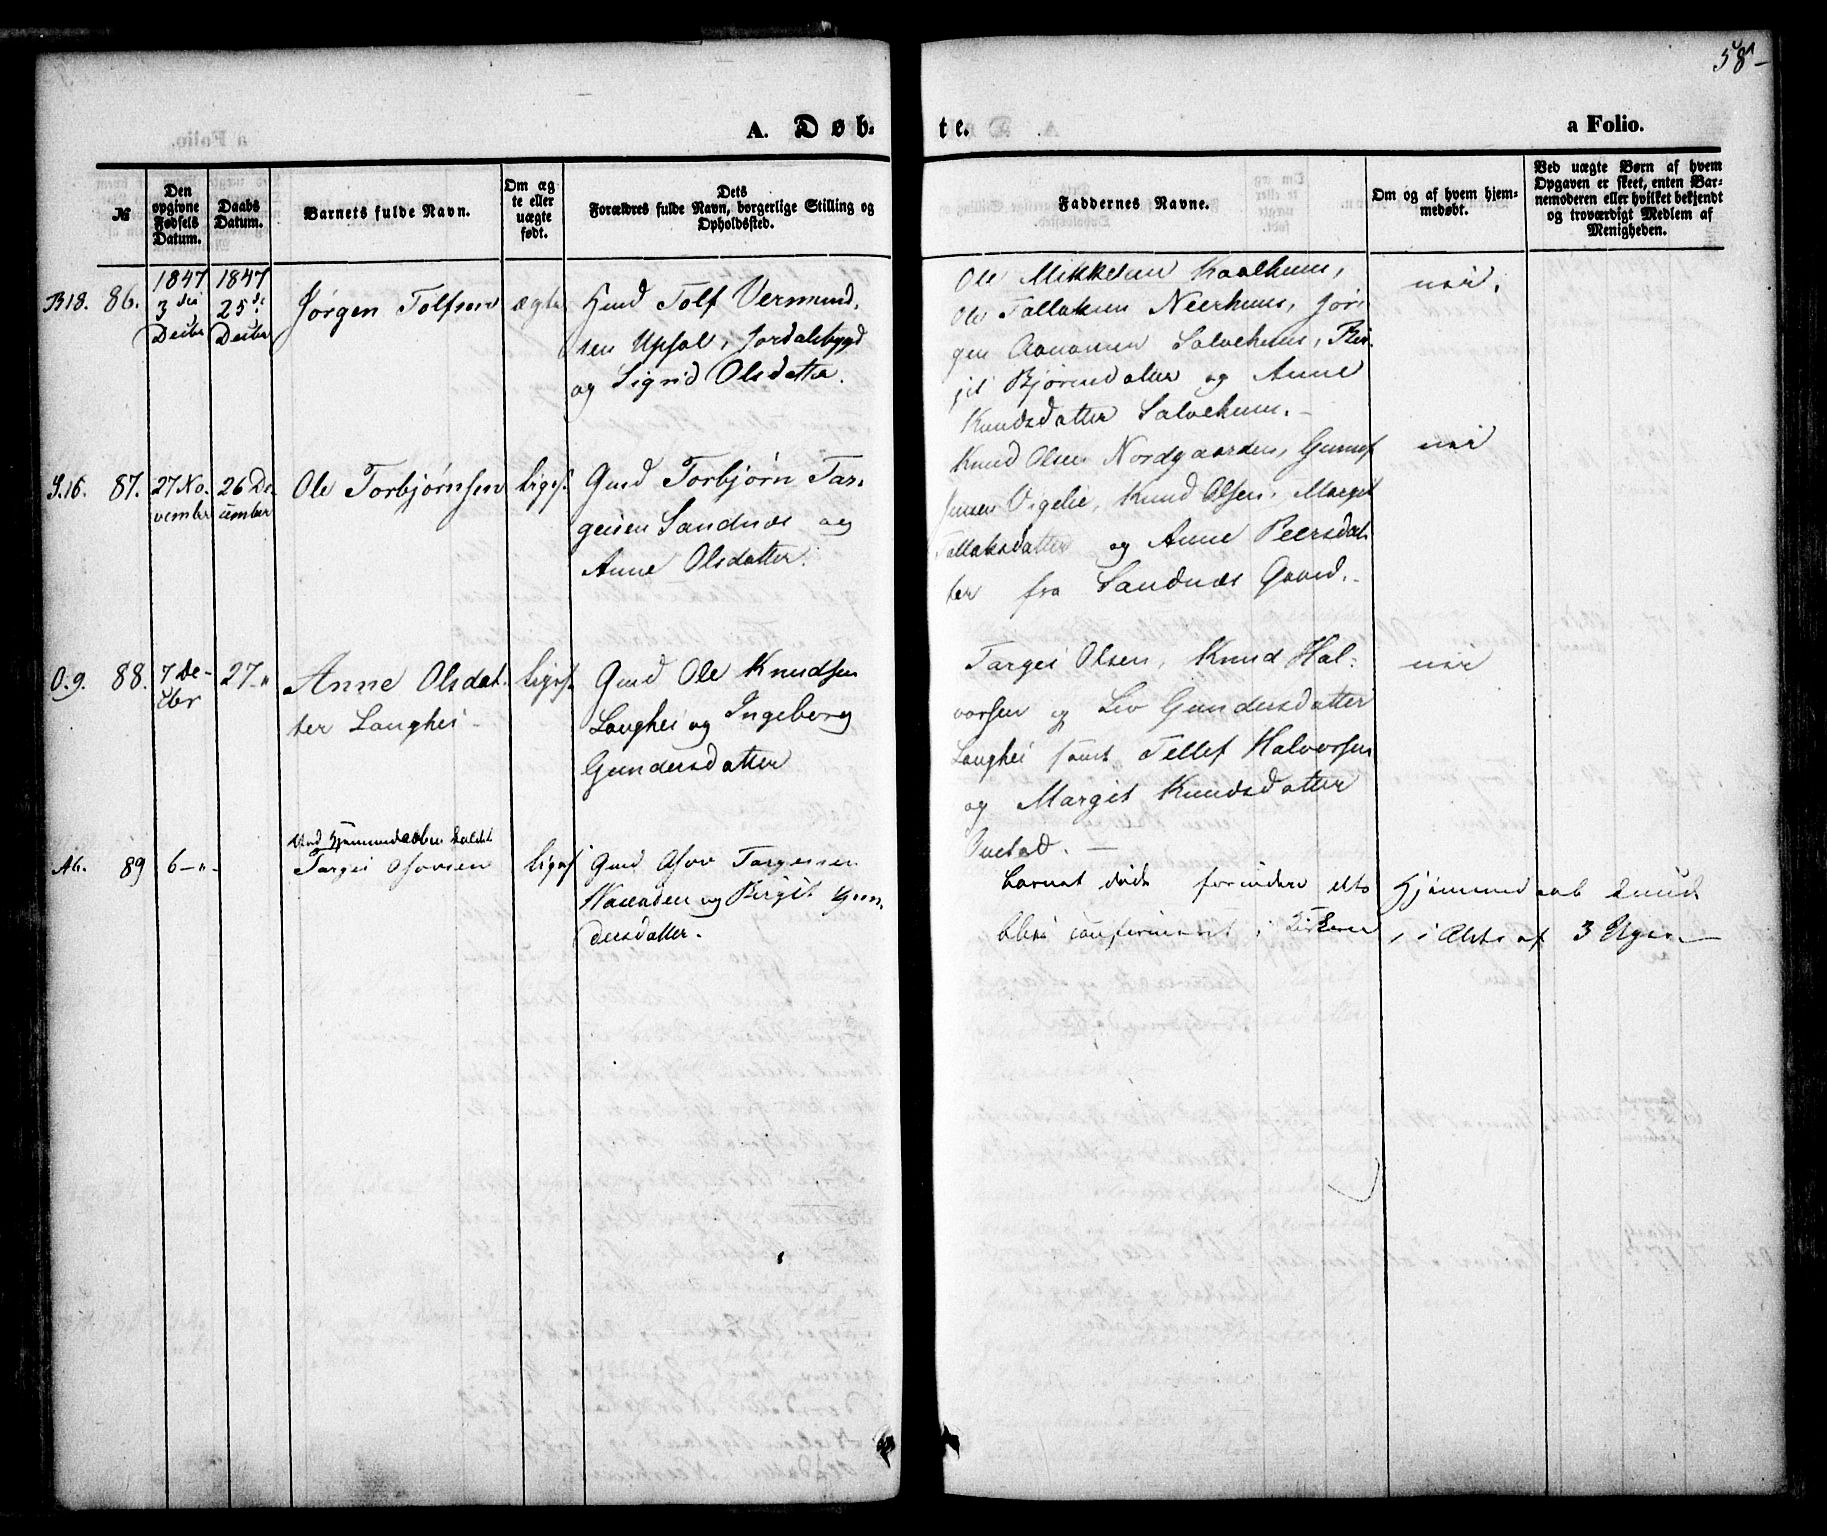 58
A. Døb-
te.
a Folio.
№
Den opgivne Fødsels Datum.
Daabs Datum.
Barnets fulde Navn.
Om ægte eller uægte født.
Dets
Forældres fulde Navn, borgerlige Stilling og Opholdssted.
Faddernes Navne.
Om og af hvem hjemmedøbt.
Ved uægte Børn af hvem Opgaven er skeet, enten Barnemoderen eller hvilket bekjendt og troværdigt Medlem af Menigheden.
B18. 86.
1847
3die
Decbr
1847
25de
Decbr
Jørgen Tolfsen
ægte
Gmd Tolf Vermund
sen Upsal, Jordalsbygd
og Sigrid Olsdatter.
Ole Mikkelsen Kaalhuus,
Ole Tallaksen Neerhuus, Jør-
gen Aanonsen Salvehuus, Bir-
jit Bjørnsdatter og Anne
Knudsdatter Salvehuus.
nei.
S.16. 87.
27 No-
vember
26 De
cember
Ole Torbjørnsen
liges.
Gmd Torbjørn Tar-
geisen Sandnæs og
Anne Olsdatter.
Knud Olsen Nordgaarden, Gunuf
Vigelie, Knud Olsen, Margit
Tallaksdatter og Anne Peersdat
ter fra Sandnæs Gaard.
nei
O.9. 88.
7 De-
cbr
27 "
Anne Olsdat-
ter Langhei
liges.
Gmd Ole Knudsen
Langhei og Ingeborg
Gundersdatter
Targei Olsen, Knud Hal-
vorsen og Liv Gundersdatter
Langhei samt Tellef Halvorsen
og Margit Knudsdatter
nei
A6. 89
6 — " -
ved Hjemmedaaben kaldet
Targei Osovsen
liges.
Gmd Osov Targeisen
og Birgit Gun
dersdatter.
barnet døde forinden dets Hjemmedaab
blev confirmeret i Kirken, i Alder af 3 Uger.